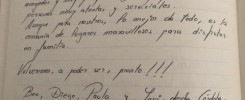 personal muy atentos y serviciales.
Aunque para nosotros, lo mejor de todo, es la
de lugares maravillosos para disfrutar
en familia.
Volveremos, a poder ser, pronto!!!
Bea, Diego, Paula y